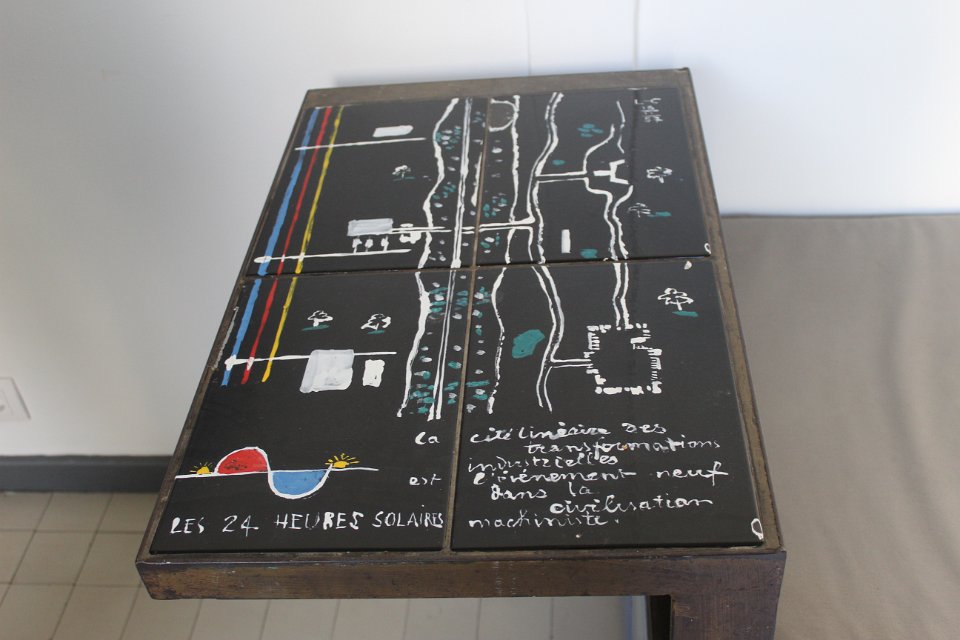 la cité linéaire des
transformations
industrielles
est l'événement neuf
dans la
civilisation
machiniste.
LES 24 HEURES SOLAIRES